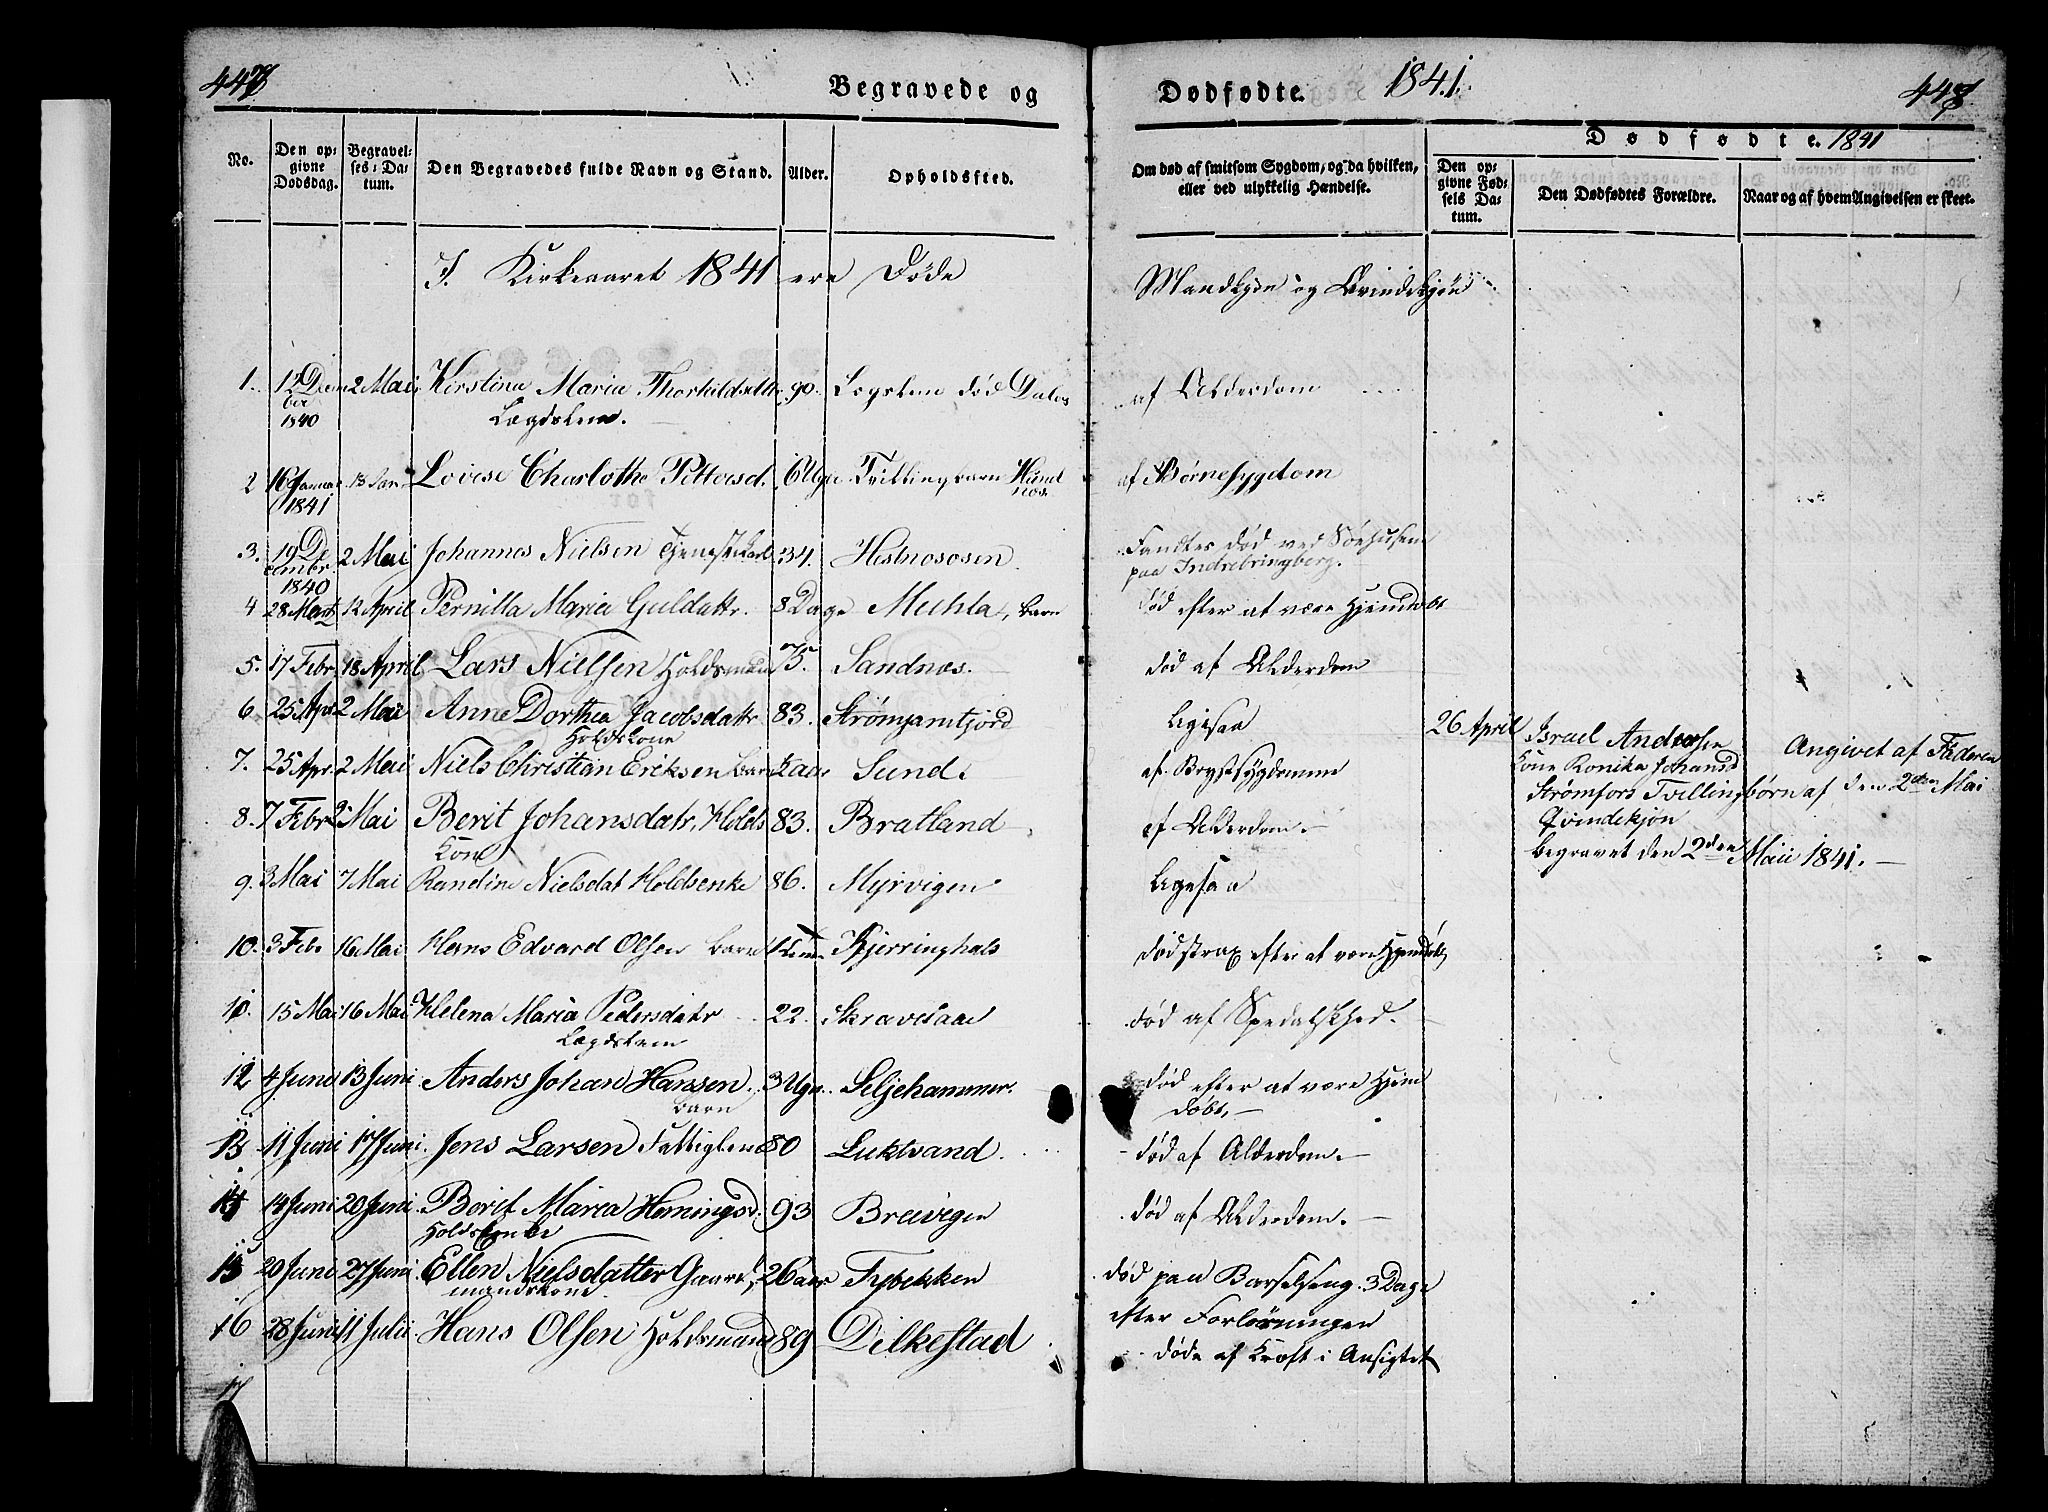 Begravede og
Dødfødte. 1841.
Dødfødte. 1841
No.
Den opgivne Dødsdag.
Begravelses-Datum.
Den Begravedes fulde Navn og Stand.
Alder.
Opholdssted.
Om død af smitsom Sygdom, og da hvilken, eller ved ulykkelig Hændelse.
Den opgivne Fødsels Datum.
Den Dødfødtes Forældre.
Naar og af hvem Angivelsen er skeet.
I Kirkeaaret 1841 ere Døde Mandkjøn og Qvindekjøn
1. 12 Decmber 1840 2 Mai Kirstina Maria Thorkildsdtr. Lægdslem. 90. Lægslem død af Alderdom
2 16 Januar 1841 18 Jan. Lovise Charlotha Pettersd. 6 Uger Tvillingbarn Hundnæs af Børnesygdom
3. 19 December 1840 2 Mai Johannes Nielsen Tjenestekarl 34. Hestnososen Fandtes død ved Søehusene paa Indrebringberg.
4 28 Marts 12 April Pernilla Maria Guldattr. 8 Dage Muhla, Barn død efter at være Hjemdøbt
5. 17 Febr. 18 April Lars Nielsen Holdsmand 75. Sandnæs. død af Alderdom
6. 25 Apr 2 Mai Anne Dorthea Jacobsdattr Holdskone 83. Strømjamtjord Ligesaa
7. 25 Apr. 2 Mai Niels Christian Eriksen Barn Sund. af Brystsygdomme
8. 7 Febr 2 Mai Berit Johansdatr. Holdskone 83. Bratland af Alderdom.
9. 3 Mai 7 Mai Randine Nielsdat Holdsenke 86. Myrvigen Ligesaa
10. 3 Febr 16 Mai Hans Edvard Olsen Barn Kjerringhals død strax efter at være Hjemdøbt
11. 15 Mai 16 Mai Helena Maria Pedersdatr Lægdslem 22. Skravlaae død af Spedalskhed.
12 4 Juni 13 Juni Anders Johan Hanssen. Barn 3 Uger. Seljehammer. død efter at være Hjemdøbt.
13 11 Juni 17 Juni. Jens Larsen Fattiglem 80 Luktvand død af Alderdom.
14 14 Juni 20 Juni. Berit Maria Hemingsd. Holdsenke 93 Breivigen død af Alderdom.
15 20 Juni 27 Juni Ellen Nielsdatter Gaardmandskone 26 aar Fybekken død paa Barselseng 3 Dage efter Forløsningen
16 28 Juni 11 Julii Hans Olsen Holdsmand 89 Dilkestad døde af Kræft i Ansigtet
17
26 April Israel Andersen
Kone Ronika Johansd
Strømfors Tvillingbørn
Qvindekjøn
begravet den 2den Maii 1841.
Angivet af Faderen
af den 2den Mai